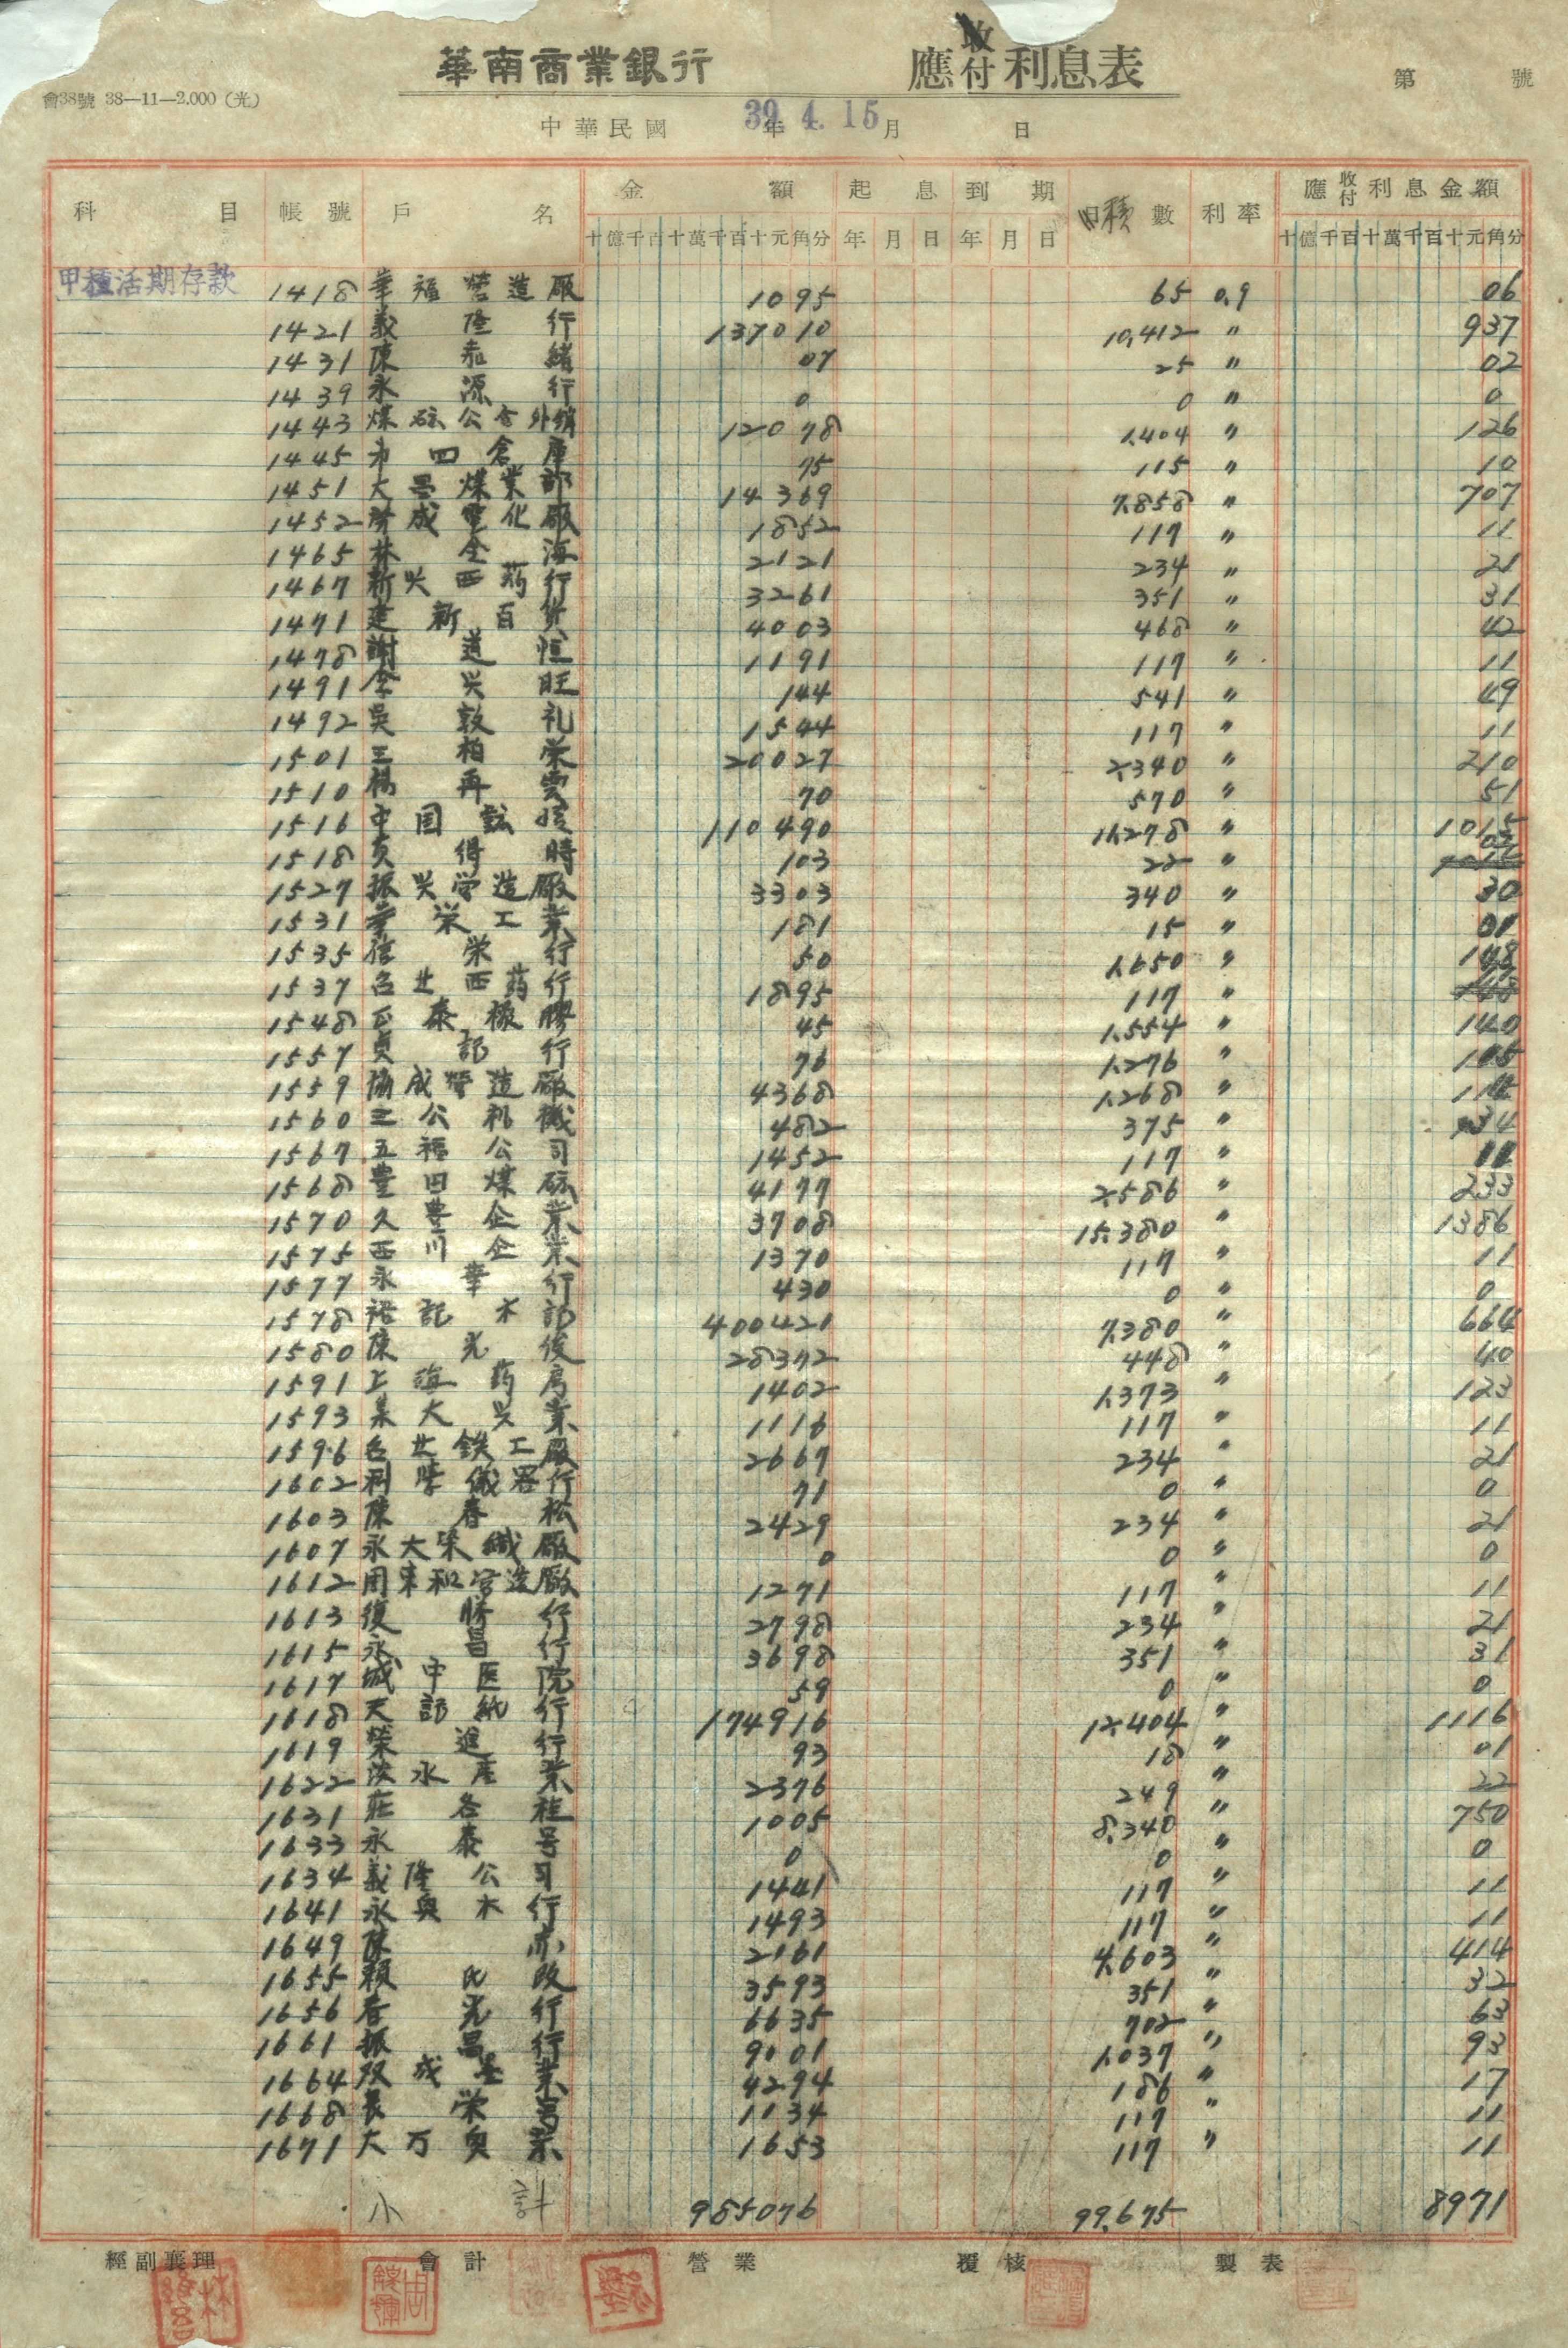 華南商業銀行 應收付利息表 第 號
會38號 38—11—2.000 (光)
中華民國 年 月 日
39. 4. 15
科目 帳號 戶名 金額 起息 到期 積數 利率 應收付利息金額
十億千百十萬千百十元角分 年月日 年月日 十億千百十萬千百十元角分
甲種活期存款
1418 華福營造廠 1095 65 0.9 06
1421 義隆行 137010 10,412 〃 937
1431 陳 緒 07 25 〃 02
1439 永源行 0 0 〃 0
1443 煤礦公會外銷 12078 1,404 〃 126
1445 四倉庫 75 115 〃 10
1451 大 煤業部 14369 7,858 〃 707
1452 成電化廠 1852 117 〃 11
1465 林全海 2121 234 〃 21
1467 新兴西药行 3261 351 〃 31
1471 建新百貨 4003 468 〃 42
1478 謝道恒 1191 117 〃 11
1491 李兴旺 144 541 〃 49
1492 吳敦礼 1544 117 〃 11
1501 王柏荣 20027 2,340 〃 210
1510 楊再雲 70 570 〃 51
1516 中国 110490 11,278 〃 1015
1518 得時 103 22 〃 02
1527 振兴営造廠 3303 340 〃 30
1531 華栄工業 181 15 〃 01
1535 信栄行 50 1,650 〃 148
1537 台北西药行 1895 117 〃
1548 正泰橡膠 45 1,554 〃 140
1557 貞記行 76 1,276 〃 115
1559 協成營造廠 4368 1,268 〃 114
1560 三公利機 482 375 〃 34
1567 五福公司 1452 117 〃 11
1568 豊田煤砿 4177 2,586 〃 233
1570 久豊企業 3708 15,380 〃 1386
1575 西川企業 1370 117 〃 11
1577 永華行 430 0 〃 0
1578 裕記木部 400421 7,380 〃 664
1580 陳光俊 28372 448 〃 40
1591 上海药房 1402 1,373 〃 123
1593 某大兴業 1116 117 〃 11
1596 台北鉄工廠 2667 234 〃 21
1602 科学儀器行 71 0 〃 0
1603 陳春松 2429 234 〃 21
1607 永大染織廠 0 0 〃 0
1612 周東和営造廠 1271 117 〃 11
1613 復勝行 2798 234 〃 21
1615 永昌行 3698 351 〃 31
1617 城中医院 59 0 〃 0
1618 天記紙行 174916 12,404 〃 1116
1619 榮進行 93 18 〃 01
1622 淡水産業 2376 249 〃 22
1631 莊各桂 1005 8,340 〃 750
1633 永泰号 0 0 〃 0
1634 義隆公司 1441 117 〃 11
1641 永興木行 1493 117 〃 11
1649 陳 2161 4,603 〃 414
1655 賴氏政 3593 351 〃 32
1656 春光行 6635 702 〃 63
1661 振昌行 9001 1,037 〃 93
1664 双成 業 4294 186 〃 17
1668 長栄号 1134 117 〃 11
1671 大万興業 1653 117 〃 11
小計 985076 99,675 8971
經副襄理 會計 營業 覆核 製表